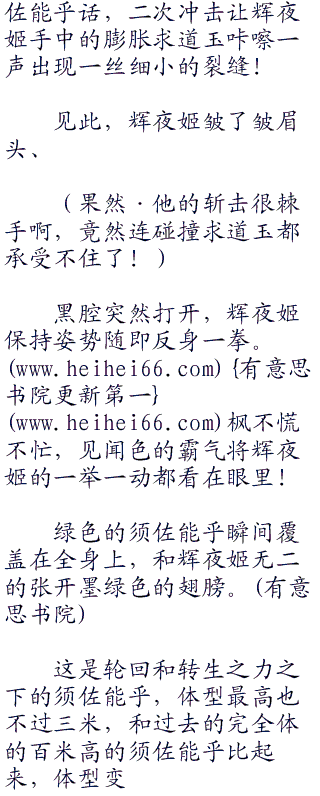 佐能乎话，二次冲击让辉夜
姬手中的膨胀求道玉咔嚓一
声出现一丝细小的裂缝！
见此，辉夜姬皱了皱眉
头、
（果然·他的斩击很棘
手啊，竟然连碰撞求道玉都
承受不住了！）
黑腔突然打开，辉夜姬
保持姿势随即反身一拳。
(www.heihei66.com){有意思
书院更新第一}
(www.heihei66.com)枫不慌
不忙，见闻色的霸气将辉夜
姬的一举一动都看在眼里！
绿色的须佐能乎瞬间覆
盖在全身上，和辉夜姬无二
的张开墨绿色的翅膀。(有意
思书院)
这是轮回和转生之力之
下的须佐能乎，体型最高也
不过三米，和过去的完全体
的百米高的须佐能乎比起
来，体型变